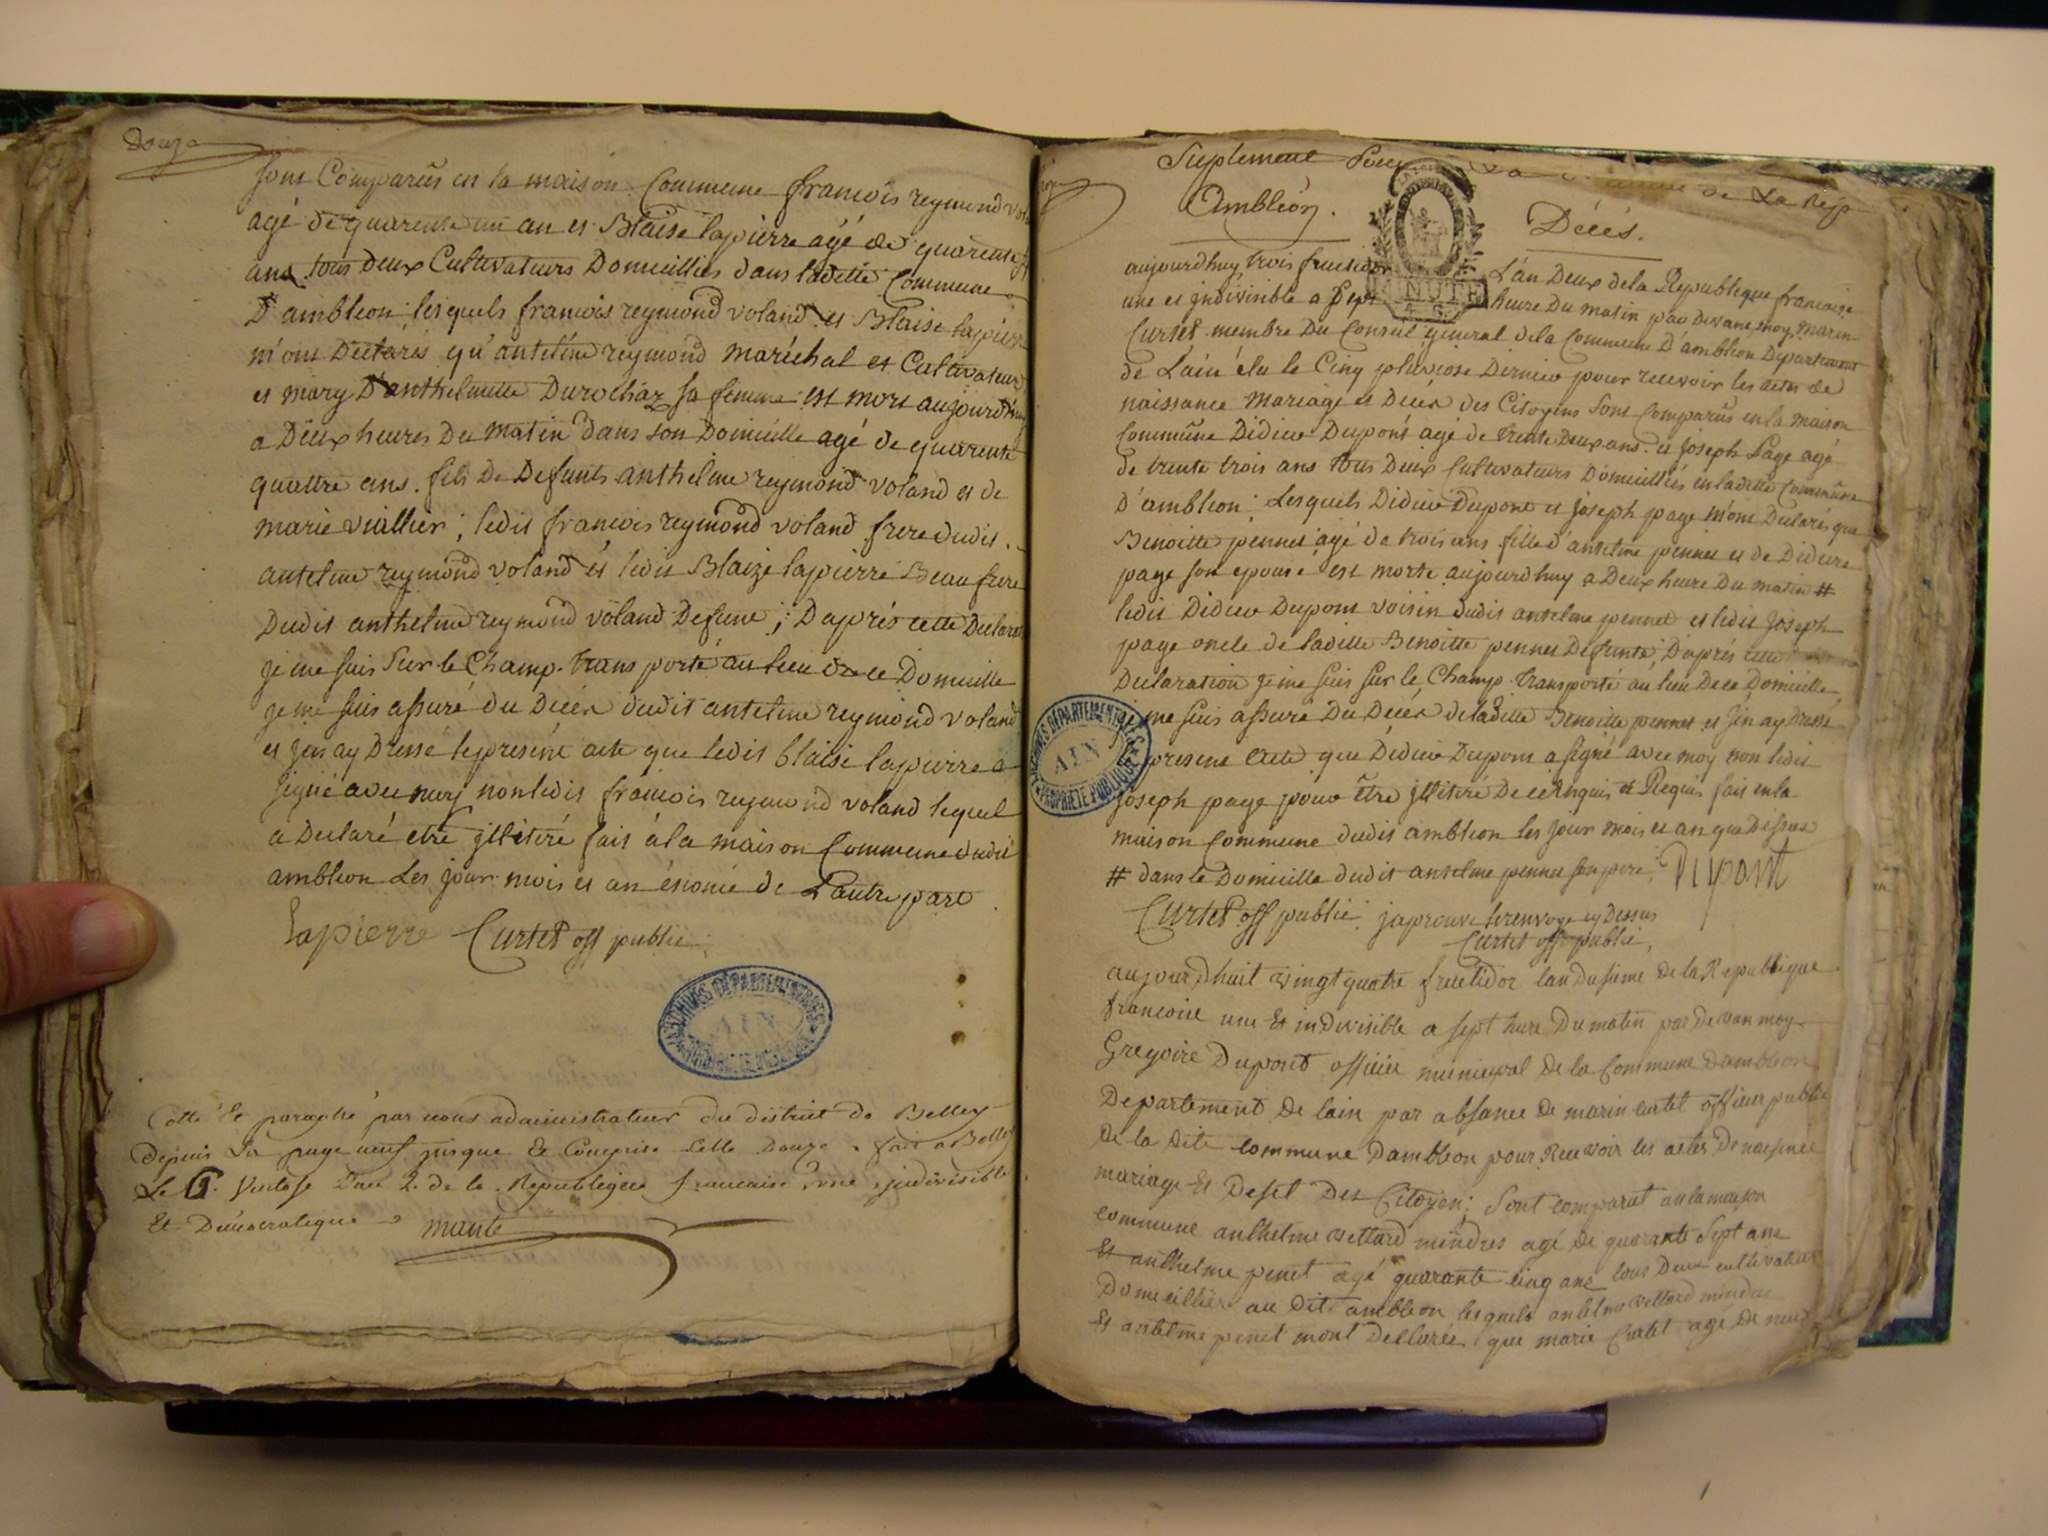 Douze
sont Comparus en la maison Commune francois reymond vol
agé de quarente un an et Blaise lapierre agé de quarente
ans tous deux Cultivateurs Domicilliés dans ladette Commune
D'ambleon; lesquels francois reymond voland et Blaise lapierre
m'ont Declarés qu'antelme reymond maréchal et Cultivateur
et mary D'anthelmette Durochaz sa femme est mort aujourd'huy
a Deux heures Du matin dans son Domicille agé de quarente
quattre ans. fils De Defunts anthelme reymond voland et de
marie viallier; ledit francois reymond voland frere dudit
antelme reymond voland et ledit Blaize lapierre Beaufrere
Dudit anthelme reymond voland Defunt; D'aprés cette Declarat
je me suis sur le Champ transporté au lieu de ce Domicille
je me suis assuré du Décés dudit antelme reymond voland
et jen ay Dressé le present acte que ledit blaise lapierre a
signé avec moy non ledit francois reymond voland lequel
a Declaré etre jllitéré fait à la maison Commune dudit
ambleon Les jour mois et an énoncé de L'autre part
Lapierre Curtet off public
Cotté Et paraphé par nous administrateur du district de Belley
Depuis La page neuf jusque Et Comprise Celle Douze. fait a Belley
Le Ventose L'an 2. de la Republique francaise, une, jndivisible
Et Democratique
ARCHIVES DÉPARTEMENTALES
AIN
PROPRIÉTÉ PUBLIQUE
Suplement Pour de La Rep
Ambléon.
Décés.
MINUTE
aujourdhuy trois fructidor L'an Deux de la Republique francaise
une et jndivisible a sept heure Du matin par devant moy marin
Curtet membre Du Conseil general de la Commune D'ambleon Departement
de L'ain élu le Cinq pluviose Dernier pour recevoir les actes de
naissance mariage et Décés des Citoyens sont Comparus en la maison
Commune Didier Dupont agé de trente deux ans et Joseph Page agé
de trente trois ans tous Deux Cultivateurs Domicilliés en ladette Commune
D'ambleon; Lesquels Didier Dupont et joseph page m'ont Declarés que
Benoitte pennet agé de trois ans fille d'antelme pennet et de Didiere
page son epouse est morte aujourdhuy a Deux heure Du matin #
ledit Didier Dupont voisin dudit antelme pennet et ledit Joseph
page oncle de ladette Benoitte pennet Defunte; D'aprés cette
Declaration je me suis sur le Champ transporté au lieu De ce Domicille
je me suis assuré Du Décés de ladette Benoitte pennet et j'en ay Dressé
present acte que Didier Dupont a signé avec moy non ledit
Joseph page pour être jllitéré De ce Enquis et Requis fait en la
maison Commune dudit ambleon les jour mois et an que Dessus
# dans le Domicille dudit antelme pennet son pere; Dupont
Curtet off public japrouve le renvoye cy Dessus
Curtet off public
ARCHIVES DÉPARTEMENTALES
AIN
PROPRIÉTÉ PUBLIQUE
aujourdhuit vingt quatre fructidor lan dusieme de la Republique
francoise une Et indivisible a sept hure Du matin par de van moy
Gregoire Dupont officier municipal de la Commune dambleon
Departement de lain par absance de marin curtet officier public
de la dite commune Dambleon pour Recevoir les actes De naisance
mariage Et Deset Des Citoyen; Sont comparut an la maison
commune anthelme vettard mindres agé de quarante Sept ans
Et anthelme penet agé quarante cinq ans tous Deux cultivateur
Domicilliés au dit ambleon lesquels antelme vettard mindres
Et antelme penet mont Dellarée que marie Curtet agé De neuf